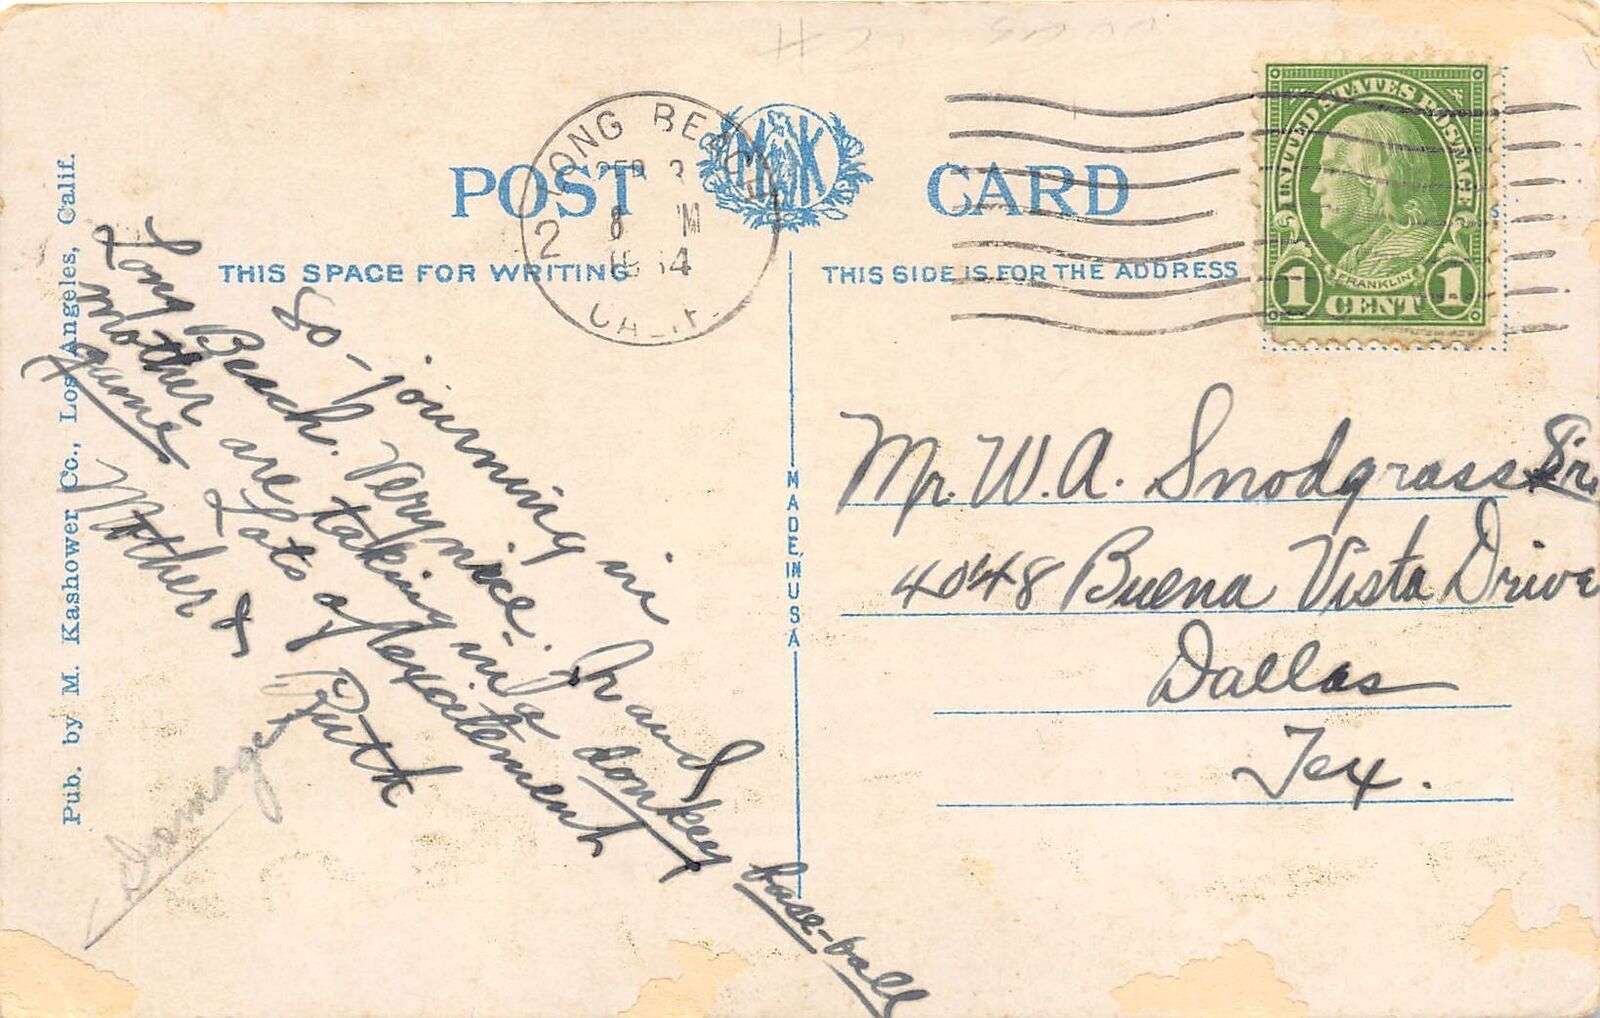 POST CARD
M K
LONG BEACH
SEP 3
8 M
2
CALIF.
UNITED STATES POSTAGE
FRANKLIN
1 CENT 1
THIS SPACE FOR WRITING
THIS SIDE IS FOR THE ADDRESS
So-journing in
Long Beach. Very nice. Jr and
mother are taking in a donkey base-ball
game Lots of excitement
Mother &
Ruth
Damage
Pub. by M. Kashower Co., Los Angeles, Calif.
MADE IN USA
Mr. W. A. Snodgrass Sr.
4048 Buena Vista Drive
Dallas
Tex.